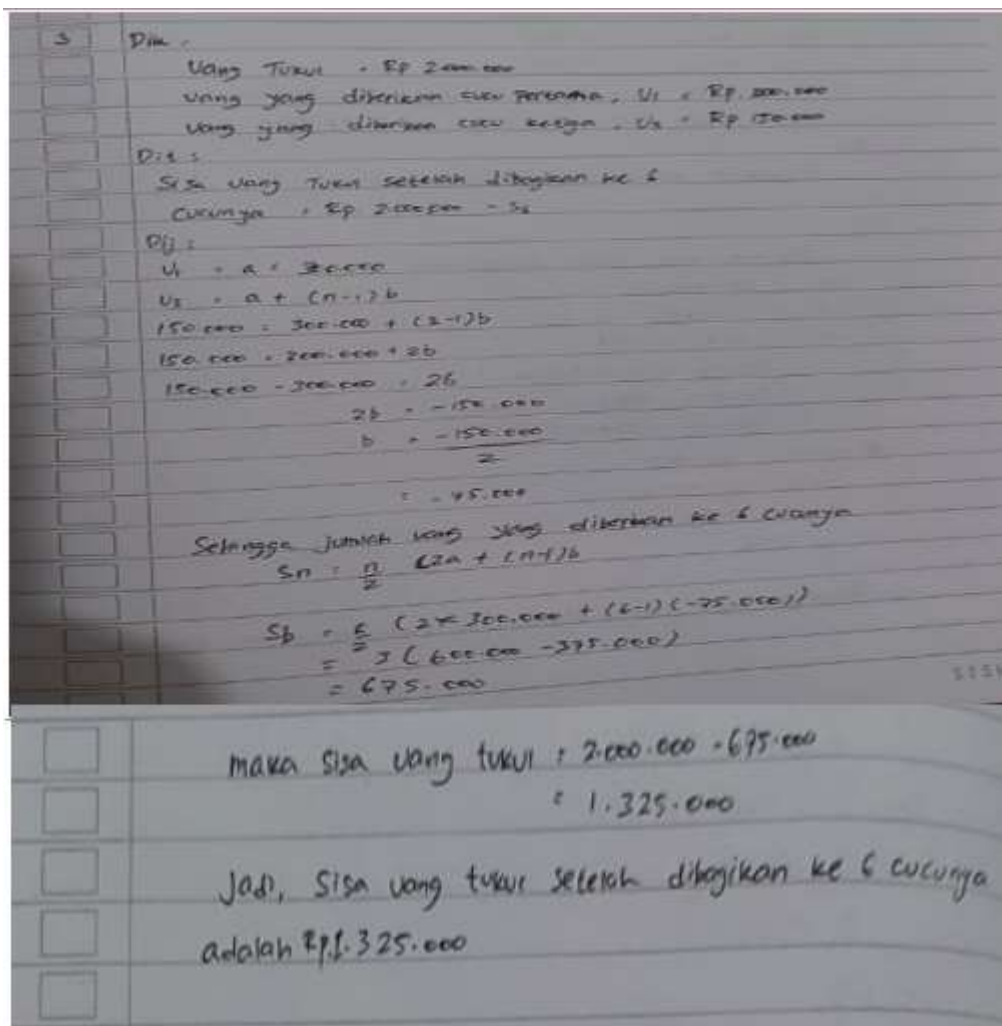 3 Dik :
Uang Tukul = Rp 2.000.000
Uang yang diberikan cucu pertama, U1 = Rp. 300.000
Uang yang diberikan cucu ketiga, U3 = Rp 150.000
Dit :
Sisa uang Tukul setelah dibagikan ke 6
Cucunya = Rp 2.000.000 - S6
Dij :
U1 = a = 300.000
U3 = a + (n-1)b
150.000 = 300.000 + (3-1)b
150.000 = 300.000 + 2b
150.000 - 300.000 = 2b
2b = -150.000
b = -150.000
2
= -75.000
Sehingga jumlah uang yang diberikan ke 6 cucunya
Sn = n/2 (2a + (n-1)b
S6 = 6/2 (2 x 300.000 + (6-1)(-75.000))
= 3 (600.000 - 375.000)
= 675.000
maka sisa uang tukul = 2.000.000 - 675.000
= 1.325.000
Jadi, Sisa uang tukul setelah dibagikan ke 6 cucunya
adalah Rp.1.325.000